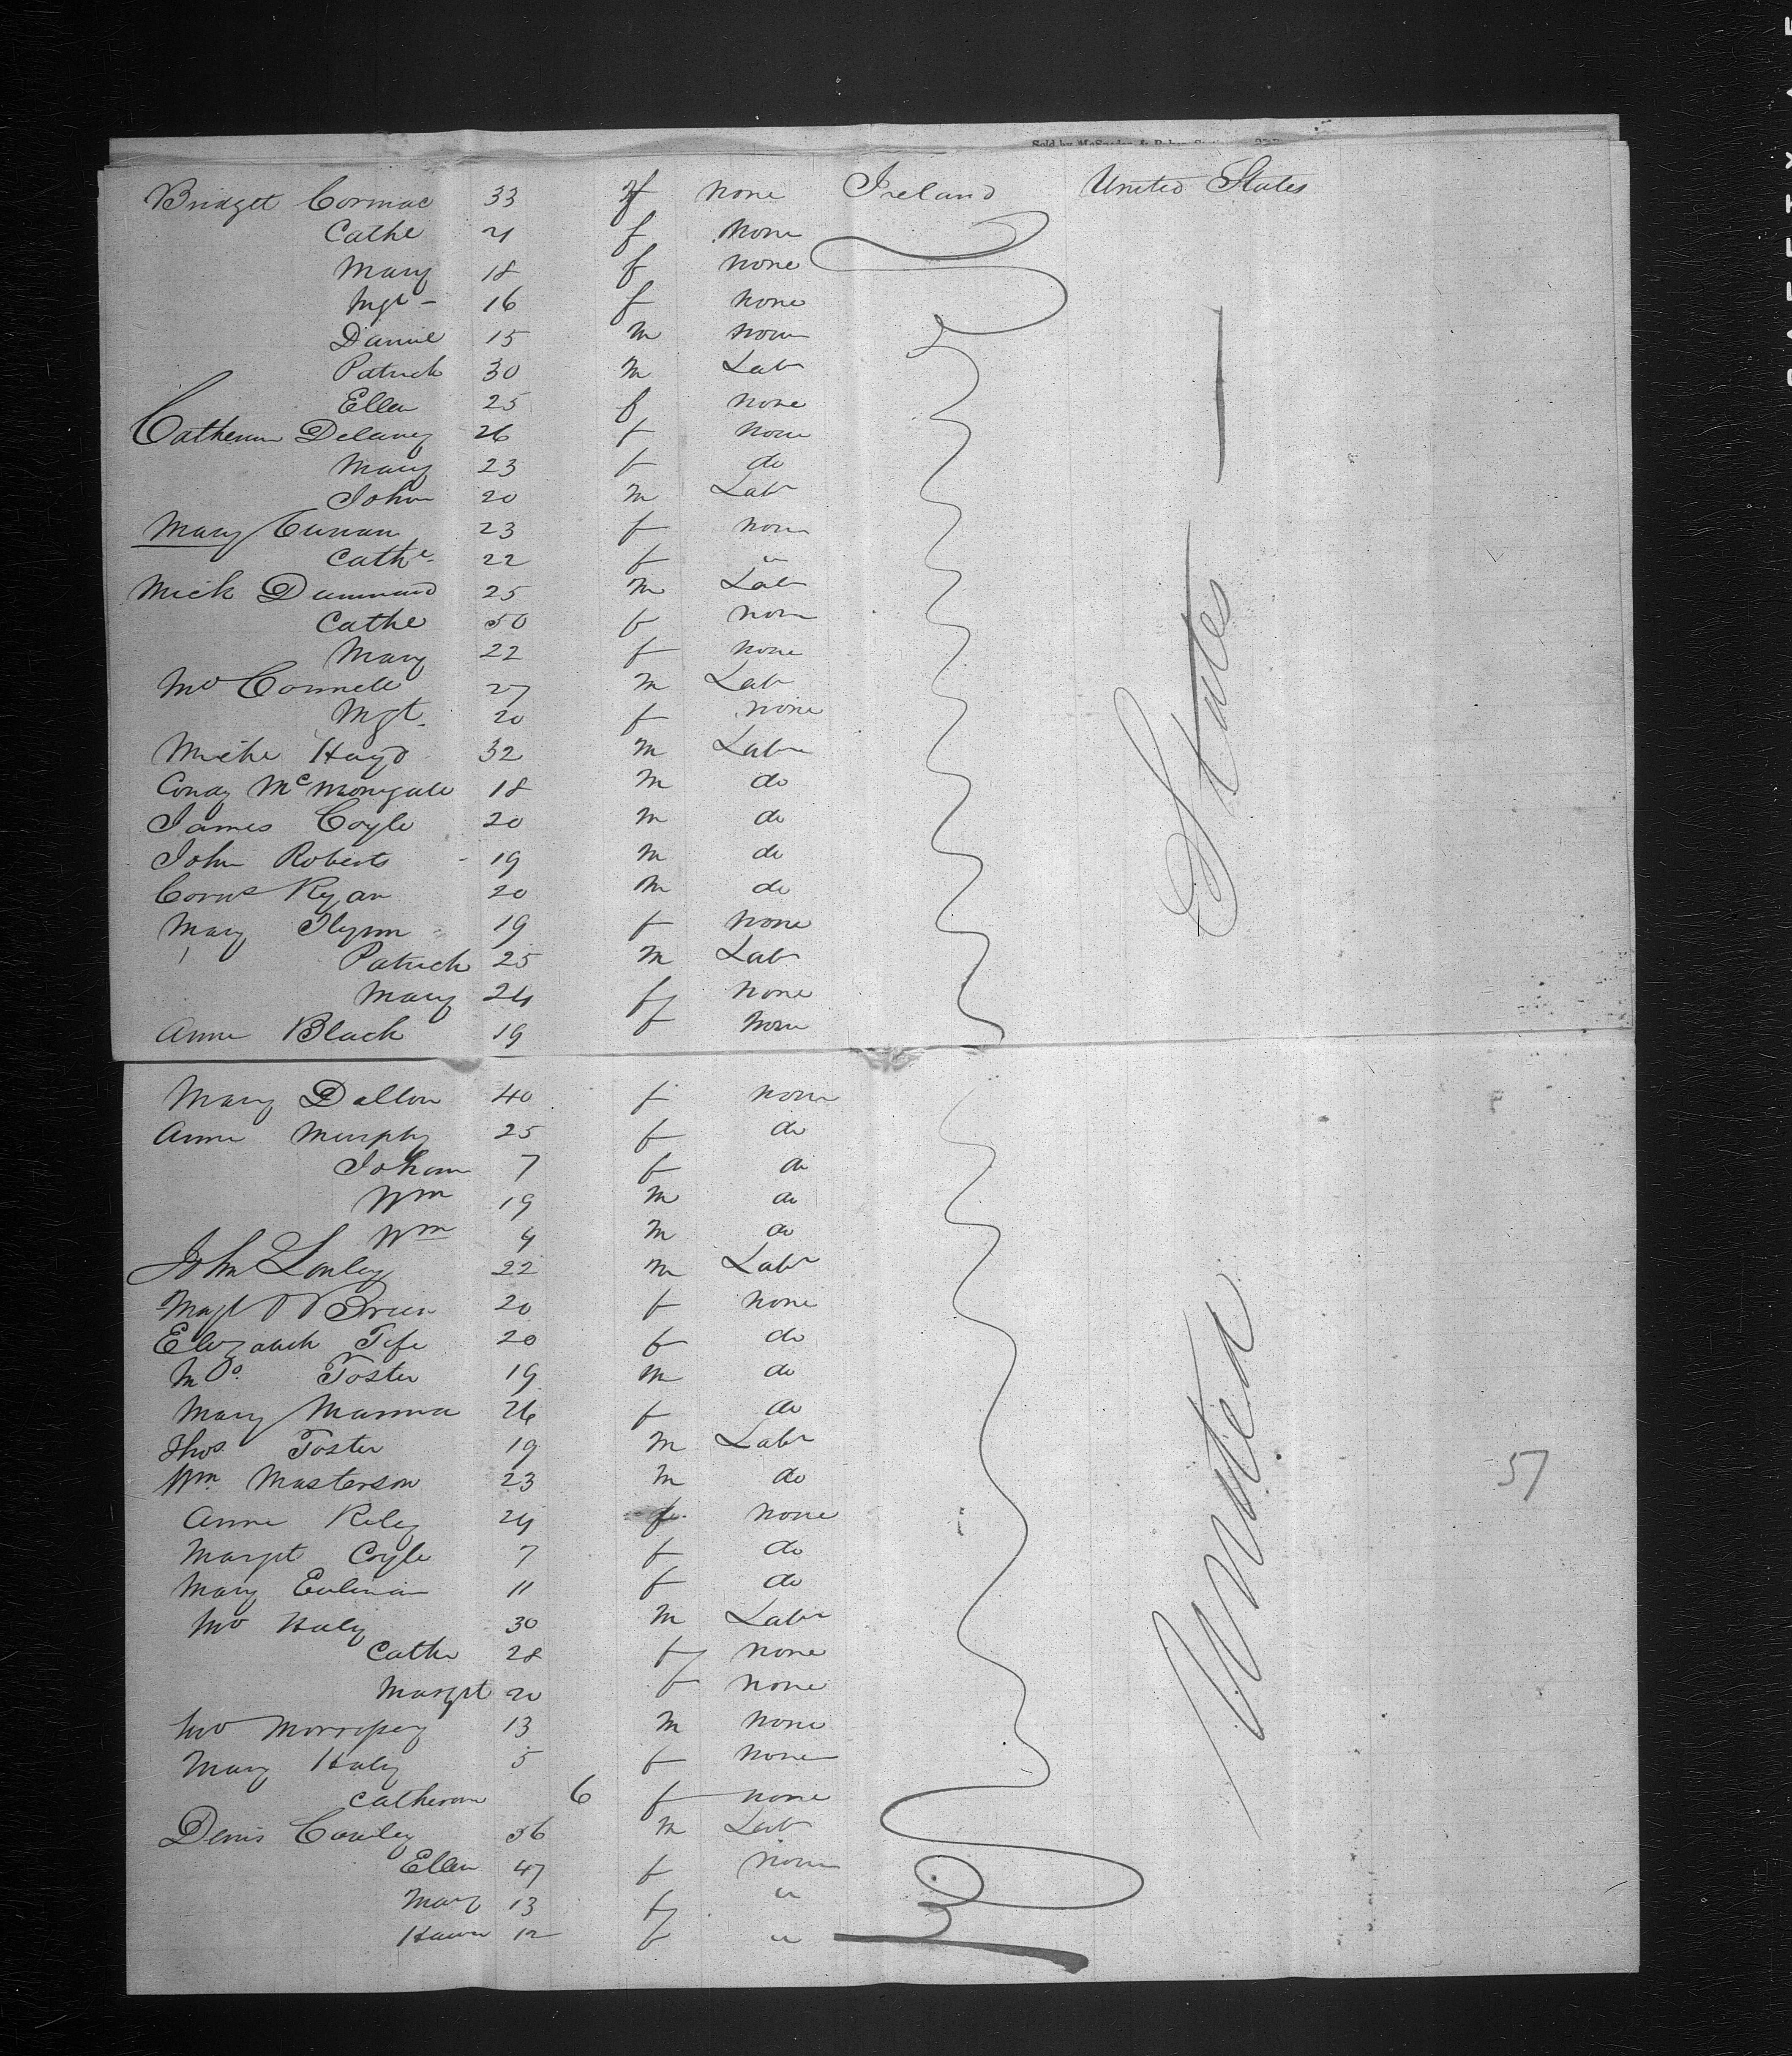 Bridget Cormac 33 f none Ireland United States
Cathe 21 f none
Mary 18 f none
Mgt - 16 f none
Daniel 15 m none
Patrick 30 m Labr
Ellen 25 f none
Catherine Delaney 26 f none
Mary 23 f do
John 20 m Labr
Mary Curran 23 f none
Cathe 22 f "
Mick 25 m Labr
Cathe 50 f none
Mary 22 f none
Connell 27 m Labr
Mgt. 20 f none
Miche Hayd 32 m Labr
Condy McMonegale 18 m do
James Coyle 20 m do
John Roberts 19 m do
Corns Ryan 20 m do
Mary Flynn 19 f none
Patrick 25 m Labr
Mary 24 f none
Anne Black 19 f none
States
Mary Dallon 40 f none
Anne Murphy 25 f do
7 f do
Wm 19 m do
Wm 4 m do
John 22 m Labr
Magt O'Brien 20 f none
Elizabeth Fife 20 f do
Foster 19 m do
Mary 26 f do
Thos. Foster 19 m Labr
Wm. Masterson 23 m do
Anne Riley 24 f none
Margrt Coyle 7 f do
Mary 11 f do
Haly 30 m Labr
Cathe 28 f none
Margrt 20 f none
13 m none
Mary Haly 5 f none
Catherine 6 f none
Denis 56 m Labr
Ellen 47 f none
Mary 13 f "
12 f "
United
57